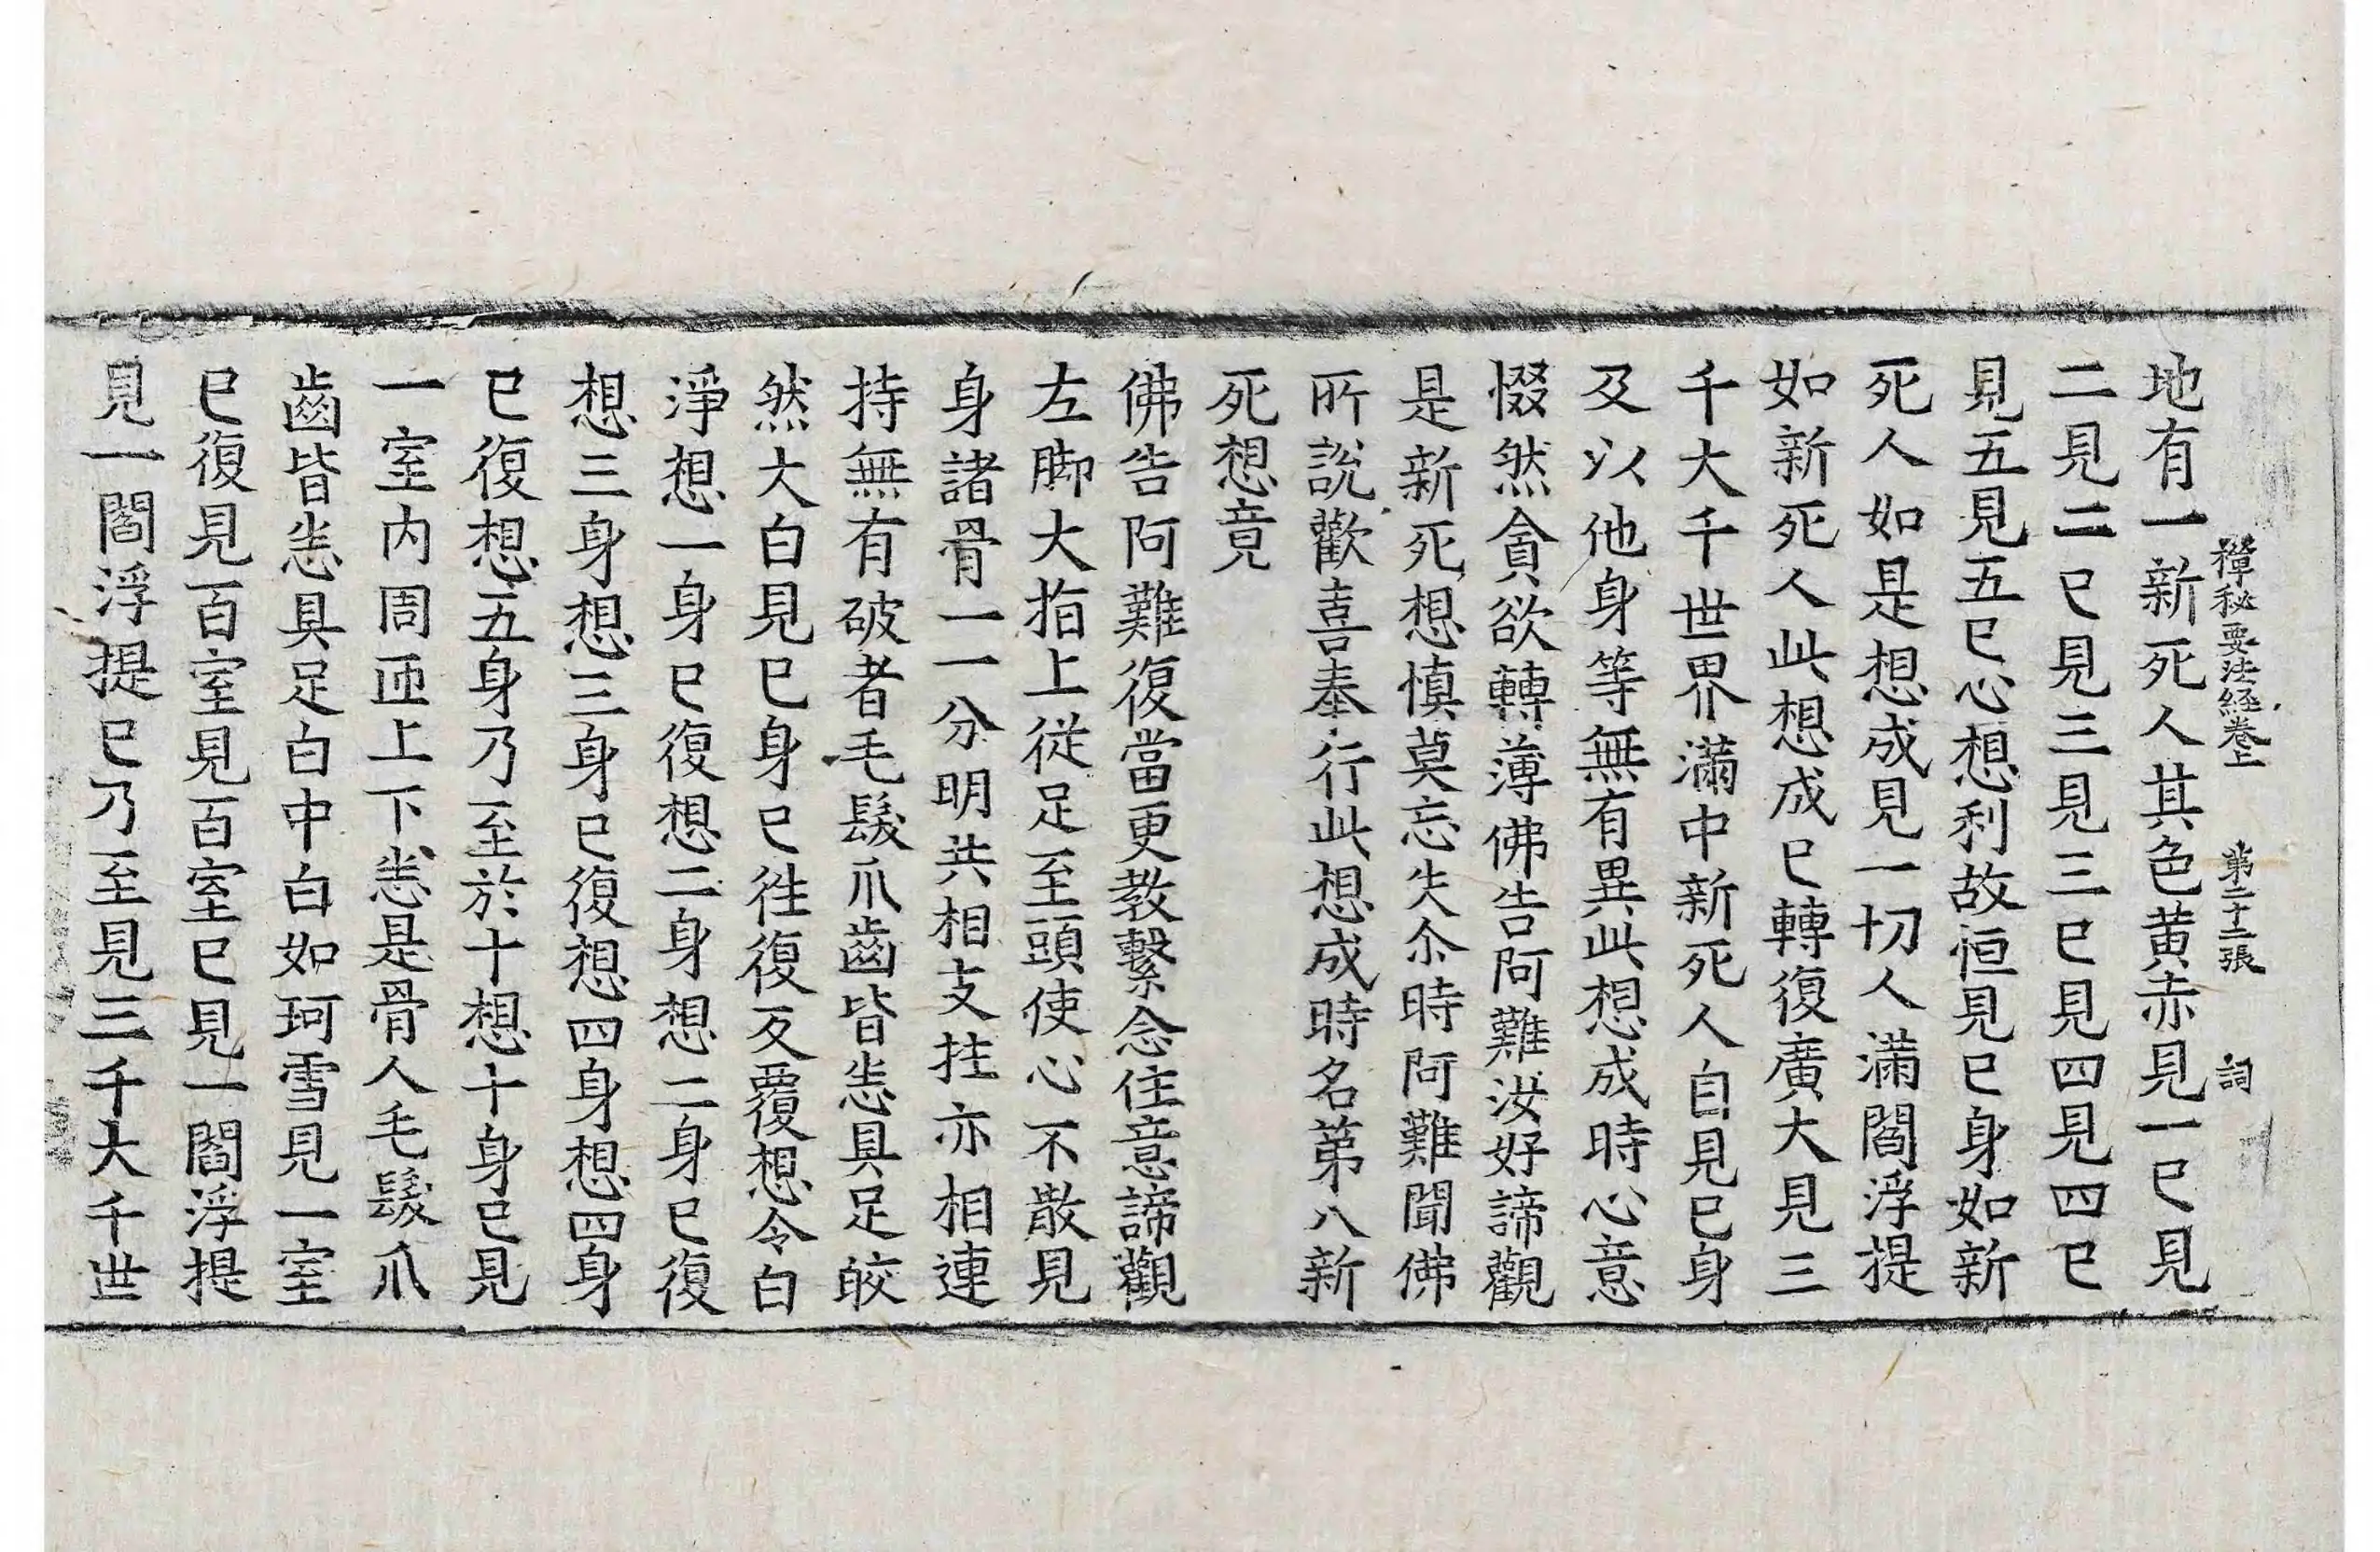 禪秘要法經卷上 第二十二張 詞
地有一新死人其色黃赤見一巳見
二見二巳見三見三巳見四見四巳
見五見五巳心想利故恒見巳身如新
死人如是想成見一切人滿閻浮提
如新死人此想成巳轉復廣大見三
千大千世界滿中新死人自見巳身
及以他身等無有異此想成時心意
惙然貪欲轉薄佛告阿難汝好諦觀
是新死想慎莫忘失尒時阿難聞佛
所說歡喜奉行此想成時名第八新
死想竟
佛告阿難復當更教繫念住意諦觀
左脚大指上從足至頭使心不散見
身諸骨一一分明共相支拄亦相連
持無有破者毛髮爪齒皆悉具足皎
然大白見巳身巳往復反覆想令白
淨想一身巳復想二身想二身巳復
想三身想三身巳復想四身想四身
巳復想五身乃至於十想十身巳見
一室內周匝上下悉是骨人毛髮爪
齒皆悉具足白中白如珂雪見一室
巳復見百室見百室巳見一閻浮提
見一閻浮提巳乃至見三千大千世